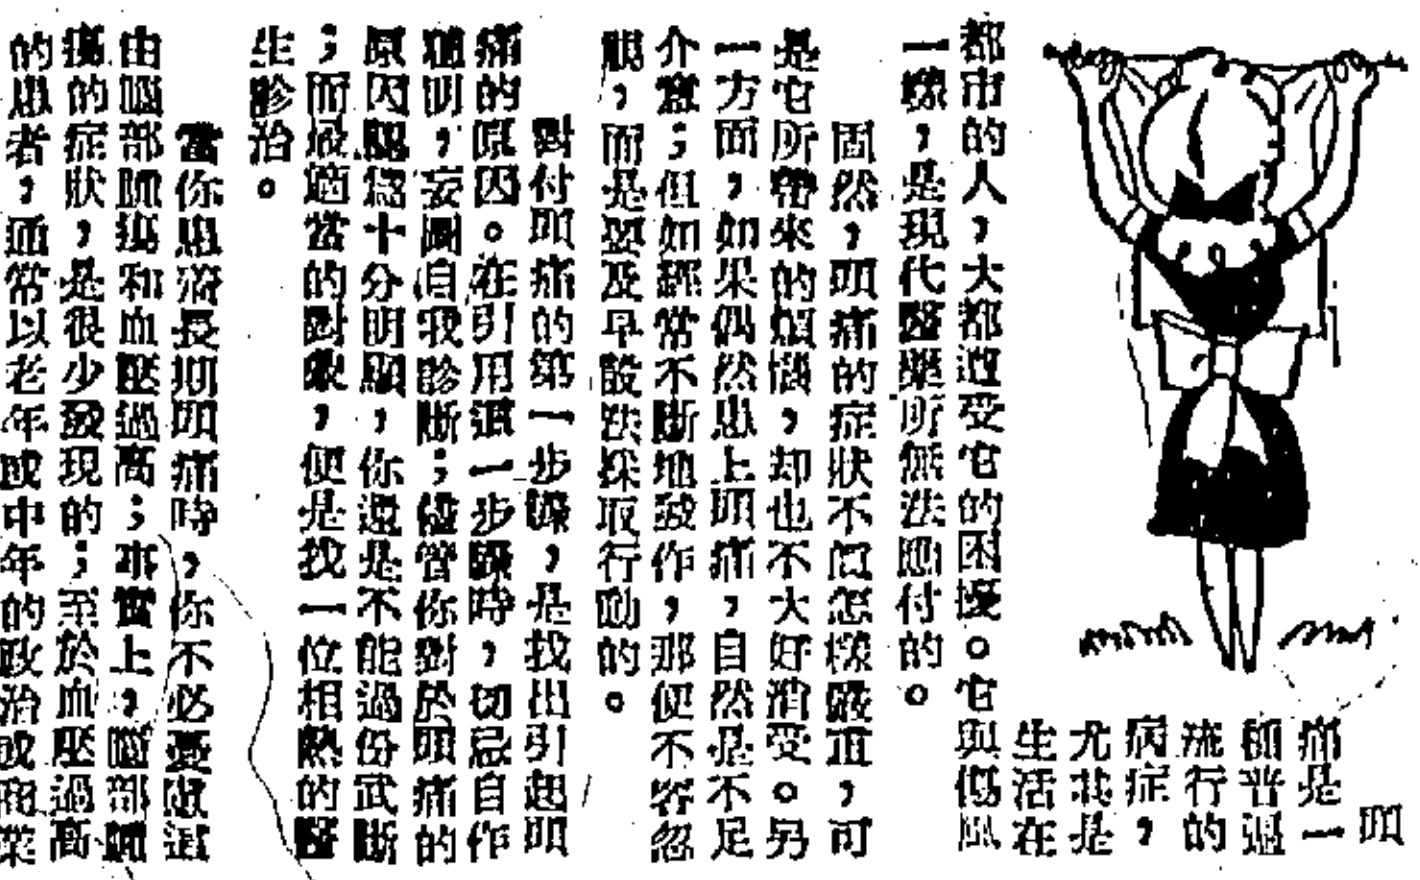 頭
痛是一
種普遍
流行的
病症，
尤其是
生活在
都市的人，大都遭受它的困擾。它與傷風
一樣，是現代醫藥所無法應付的。
固然，頭痛的症狀不假怎樣嚴重，可
是它所帶來的煩惱，却也不大好消受。另
一方面，如果偶然患上頭痛，自然是不足
介意；但如經常不斷地發作，那便不容忽
視，而是要及早設法採取行動的。
對付頭痛的第一步驟，是找出引起頭
痛的原因。在引用這一步驟時，切忌自作
聰明，妄圖自我診斷；儘管你對於頭痛的
原因認為十分明顯，你還是不能過份武斷
；而最適當的對策，便是找一位相熟的醫
生診治。
當你患着長期頭痛時，你不必憂慮這
由腦部腫瘍和血壓過高；事實上，腦部腫
瘍的症狀，是很少發現的；至於血壓過高
的患者，通常以老年或中年的政治或商業